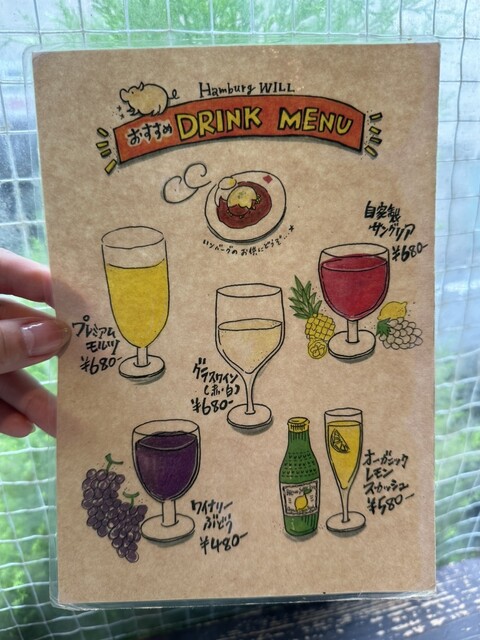 Hamburg WILL
おすすめ DRINK MENU
ハンバーグのお供にどうぞ...★
自家製
サングリア
¥680-
プレミアム
モルツ
¥680-
グラスワイン
(赤・白)
¥680-
オーガニック
レモン
スカッシュ
¥580-
ワイナリー
ぶどう
¥480-